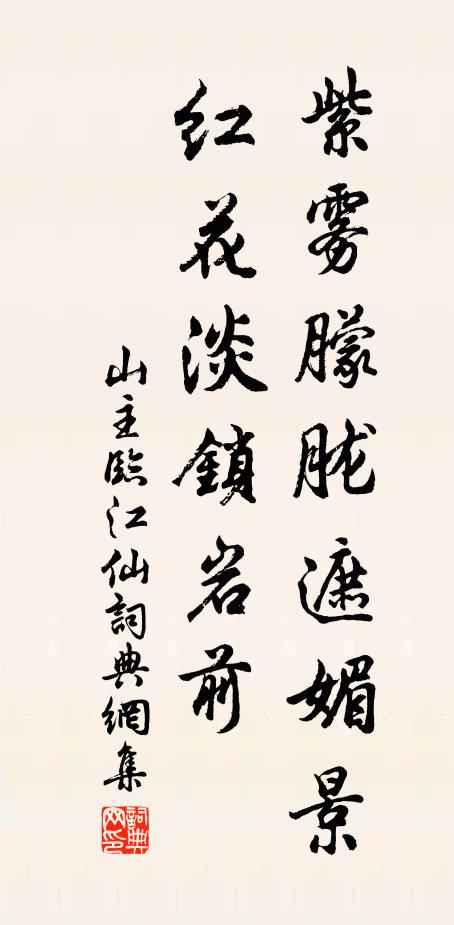 紫雾朦胧遮媚景
红花淡鎖岩前
山主臨江仙詞典網集
詞典
网印